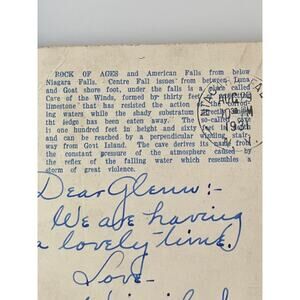 ROCK OF AGES and American Falls from below
Niagara Falls. Centre Fall issues from between Luna
and Goat shore, under the falls is a place called
Cave of the Winds, formed by thirty feet
limestone that has resisted the action of the corrod-
ing waters while the shady substratum directly
the ledge has been eaten away. The so-called cave
is one hundred feet in height and sixty feet
and can be reached by a perpendicular winding stair-
way from Goat Island. The cave derives its name from
the constant pressure of the atmosphere caused by
the reflex of the falling water which resembles a
storm of great violence.
AUG 29
1931
Dear Glenn:-
We are having
a lovely time.
Love-